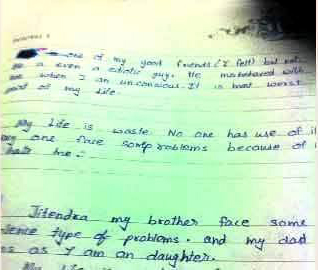 one of my good friends (I felt) but not
a even a ediotic guy. He misbehaved with
me when I am unconsious. It is most worst
of my life.
My life is waste. No one has use of it
one face so problems because of
hate me.
Jitendra my brother face some
type of problems. and my dad
as I am an daughter.